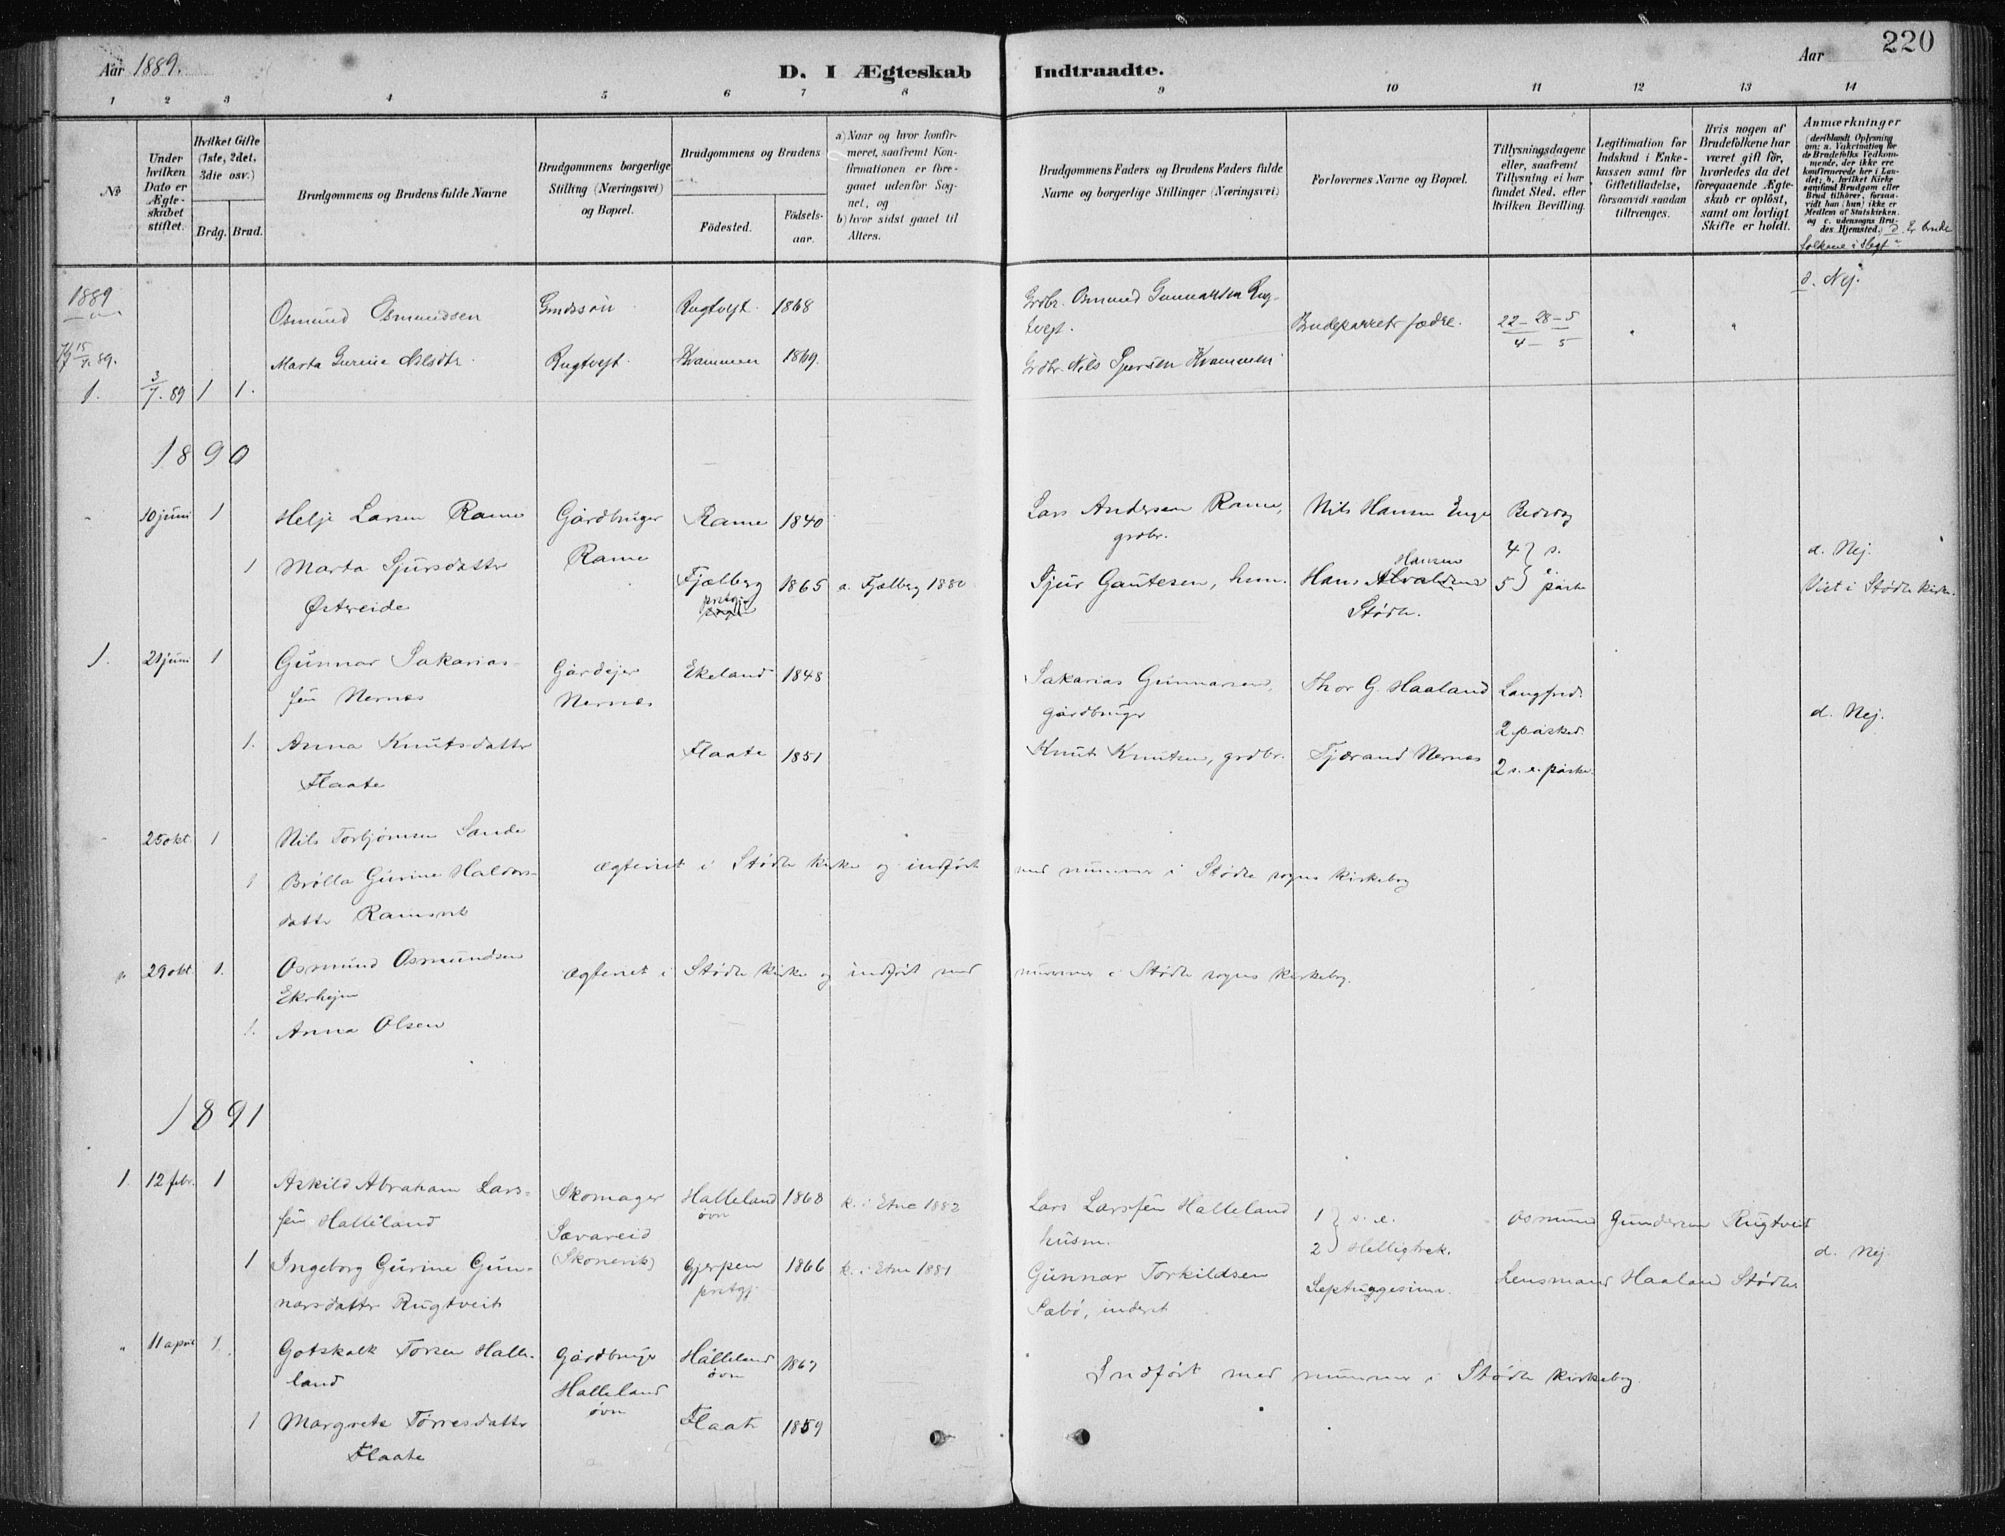 Aar 1889.
D. I Ægteskab Indtraadte.
Aar
220
1 2 3 4 5 6 7 8 9 10 11 12 13 14
No
Under hvilken Dato er Ægteskabet stiftet.
Hvilket Gifte (1ste, 2det, 3die osv.)
Brdg. Brud.
Brudgommens og Brudens fulde Navne
Brudgommens borgerlige Stilling (Næringsvei) og Bopæl.
Brudgommens og Brudens
Fødested.
Fødselsaar.
a) Naar og hvor konfirmeret, saafremt Konfirmationen er foregaaet udenfor Sognet, og
b) hvor sidst gaaet til Alters.
Brudgommens Faders og Brudens Faders fulde Navne og borgerlige Stillinger (Næringsvei)
Forlovernes Navne og Bopæl.
Tillysningsdagene eller, saafremt Tillysning ei har fundet Sted, efter hvilken Bevilling.
Legitimation for Indskud i Enkekassen samt for Giftetilladelse, forsaavidt saadan tiltrænges.
Hvis nogen af Brudefolkene har været gift før, hvorledes da det foregaaende Ægteskab er opløst, samt om lovligt Skifte er holdt.
Anmærkninger (deriblandt Oplysning om: a. Vakcination for de Brudefolks Vedkommende, der ikke ere konfirmerede her i Landet; b. hvilket Kirkesamfund Brudgom eller Brud tilhører, forsaavidt han (hun) ikke er Medlem af Statskirken, og c. udensogns Brudes Hjemsted.) d. Er brudefolkene i slegt
1889
Osmund Osmundsen Grdssøn Rugtvejt. 1868 Grdbr. Osmund Gunnarsen Rugtvejt. Brudeparrets fædre. 22 – 28 – 5
4 – 5 d. Nej.
15/7. 89. Marta Gurine Nilsdtr. Rugtvejt. Kvammen 1869. Grdbr. Nils Sjursen Kvammen
1. 3/7. 89 1 1.
1890
10 juni 1 Helje Larsen Rame Gårdbruger Rame 1840 Lars Andersen Rame, grdbr. Nils Hansen Enge Bededag
Rame
1 Marta Sjursdatter Fjælberg 1865 a. Fjælberg 1880 Sjur Gautesen, husm. Hans Hansen 4 } s. e.
5 } påske d. Nej.
Østreide prstgj. Stødle. Viet i Stødle kirke.
1. 21 juni 1 Gunnar Sakariassen Nernes Gårdejer Nernes Ekeland 1848 Sakarias Gunnarsen, gårdbruger Thor G. Haaland Langfred.
2 påsked. d. Nej.
1. Anna Knutsdatter Flaate Flaate 1851 Knut Knutsen, grdbr. Tjærand Nernes 2 s. e. påske
25 okt 1 Nils Torbjørnsen Sande
1 Brølla Gurine Haldorsdatter Ramsvik ægteviet i Stødle kirke og indført med nummer i Stødle sogns kirkebog
" 29 okt 1. Osmund Osmundsen Ekrhejm ægteviet i Stødle kirke og indført med nummer i Stødle sogns kirkebog.
1. Anna Olsen
1891
1. 12 febr. 1 Askild Abraham Larssen Halleland Skomager Sævareid Skonevik Halleland øvre 1868 k. i Etne 1883 Lars Larssen Halleland husm. 1 } s. e.
2 } Helligtrek. Osmund Gundersen Rugtveit
1 Ingeborg Gurine Gunnarsdatter Rugtveit Gjerpen prstgj. 1866 k. i Etne 1881 Gunnar Torkildsen Sæbø, inderst Septuagesima. Lensmand Haaland Stødle d. Nej.
" 11 april 1. Gotskalk Torsen Halleland Gårdbruger Halleland øvre Halleland øvre 1867 Indført med nummer i Stødle kirkebog.
1 Margrete Tørresdatter Flaate Flaate 1859